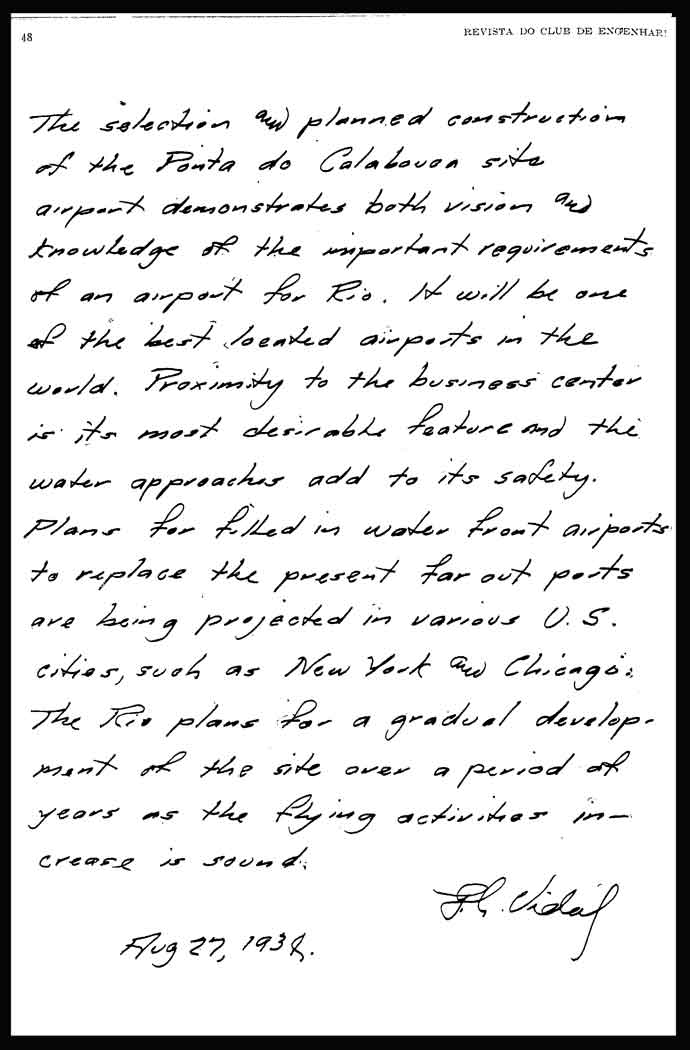 48
REVISTA DO CLUB DE ENGENHARI
The selection and planned construction
of the Ponta do Calabouca site
airport demonstrates both vision and
knowledge of the important requirements
of an airport for Rio. It will be one
of the best located airports in the
world. Proximity to the business center
is its most desirable feature and the
water approaches add to its safety.
Plans for filled in water front airports
to replace the present far out ports
are being projected in various U.S.
cities, such as New York and Chicago.
The Rio plans for a gradual develop-
ment of the site over a period of
years as the flying activities in-
crease is sound.
Vidal
Aug 27,